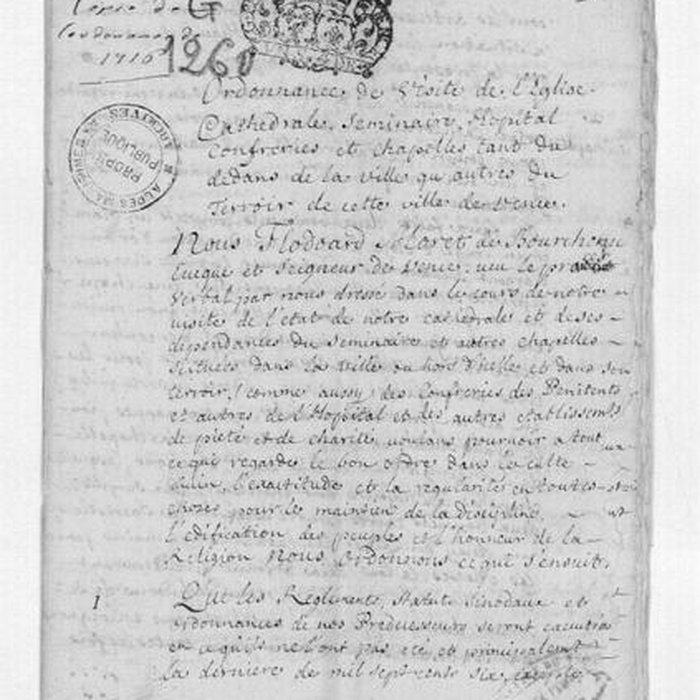 Vence de G
l'ordonnance de
1716
1260
ARCHIVES
PROPRIÉTÉ
PUBLIQUE
ALPES MARITIMES
Ordonnance de Visite de l'Eglise
Cathedrale, Seminaire, Hopital
Confreries et chapelles tant du
dedans de la ville qu autres du
Terroir de cette ville de Vence.
Nous Flodoard Moret de Bourchenu
Eveque et Seigneur de Vence, veu le procès
verbal par nous dressé dans le cours de notre
visite de l'etat de notre cathedrale et de ses
dependances du seminaire et autres chapelles
scituées dans la ville ou hors d'icelle et dans son
terroir, comme aussy des Confreries des Penitents
et autres de l'Hopital et des autres etablissemts
de pieté et de charité voulans pourvoir a tout
ce qui regarde le bon ordre dans le culte
divin, l'exactitude et la regularité en toutes
choses pour le maintien de la discipline,
l'edification des peuples et l'honneur de la
Religion Nous Ordonnons ce qui s'ensuit.
1 Que les Reglements, statuts sinodaux et
ordonnances de nos Predecesseurs seront executées
en ce qu'ils ne l'ont pas eté, et principalemt
la derniere de mil sept cents six